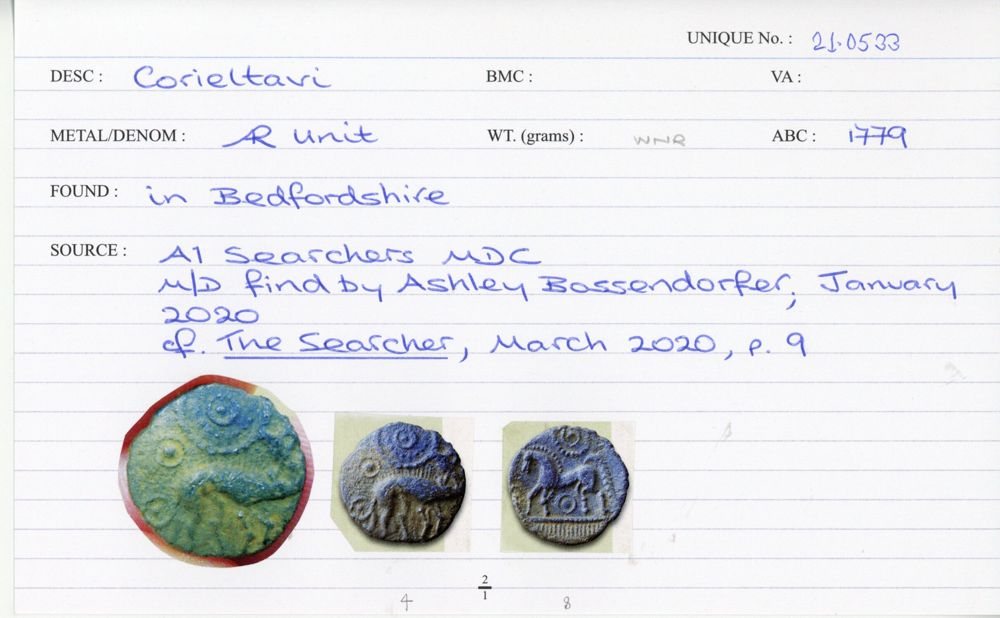 UNIQUE No. : 21.0533
DESC : Corieltavi BMC : VA :
METAL/DENOM : AR Unit WT. (grams) : WNR ABC : 1779
FOUND : in Bedfordshire
SOURCE : A1 Searchers MDC
M/D find by Ashley Bossendorfer, January
2020
cf. The Searcher, March 2020, p. 9
2/1
4 8